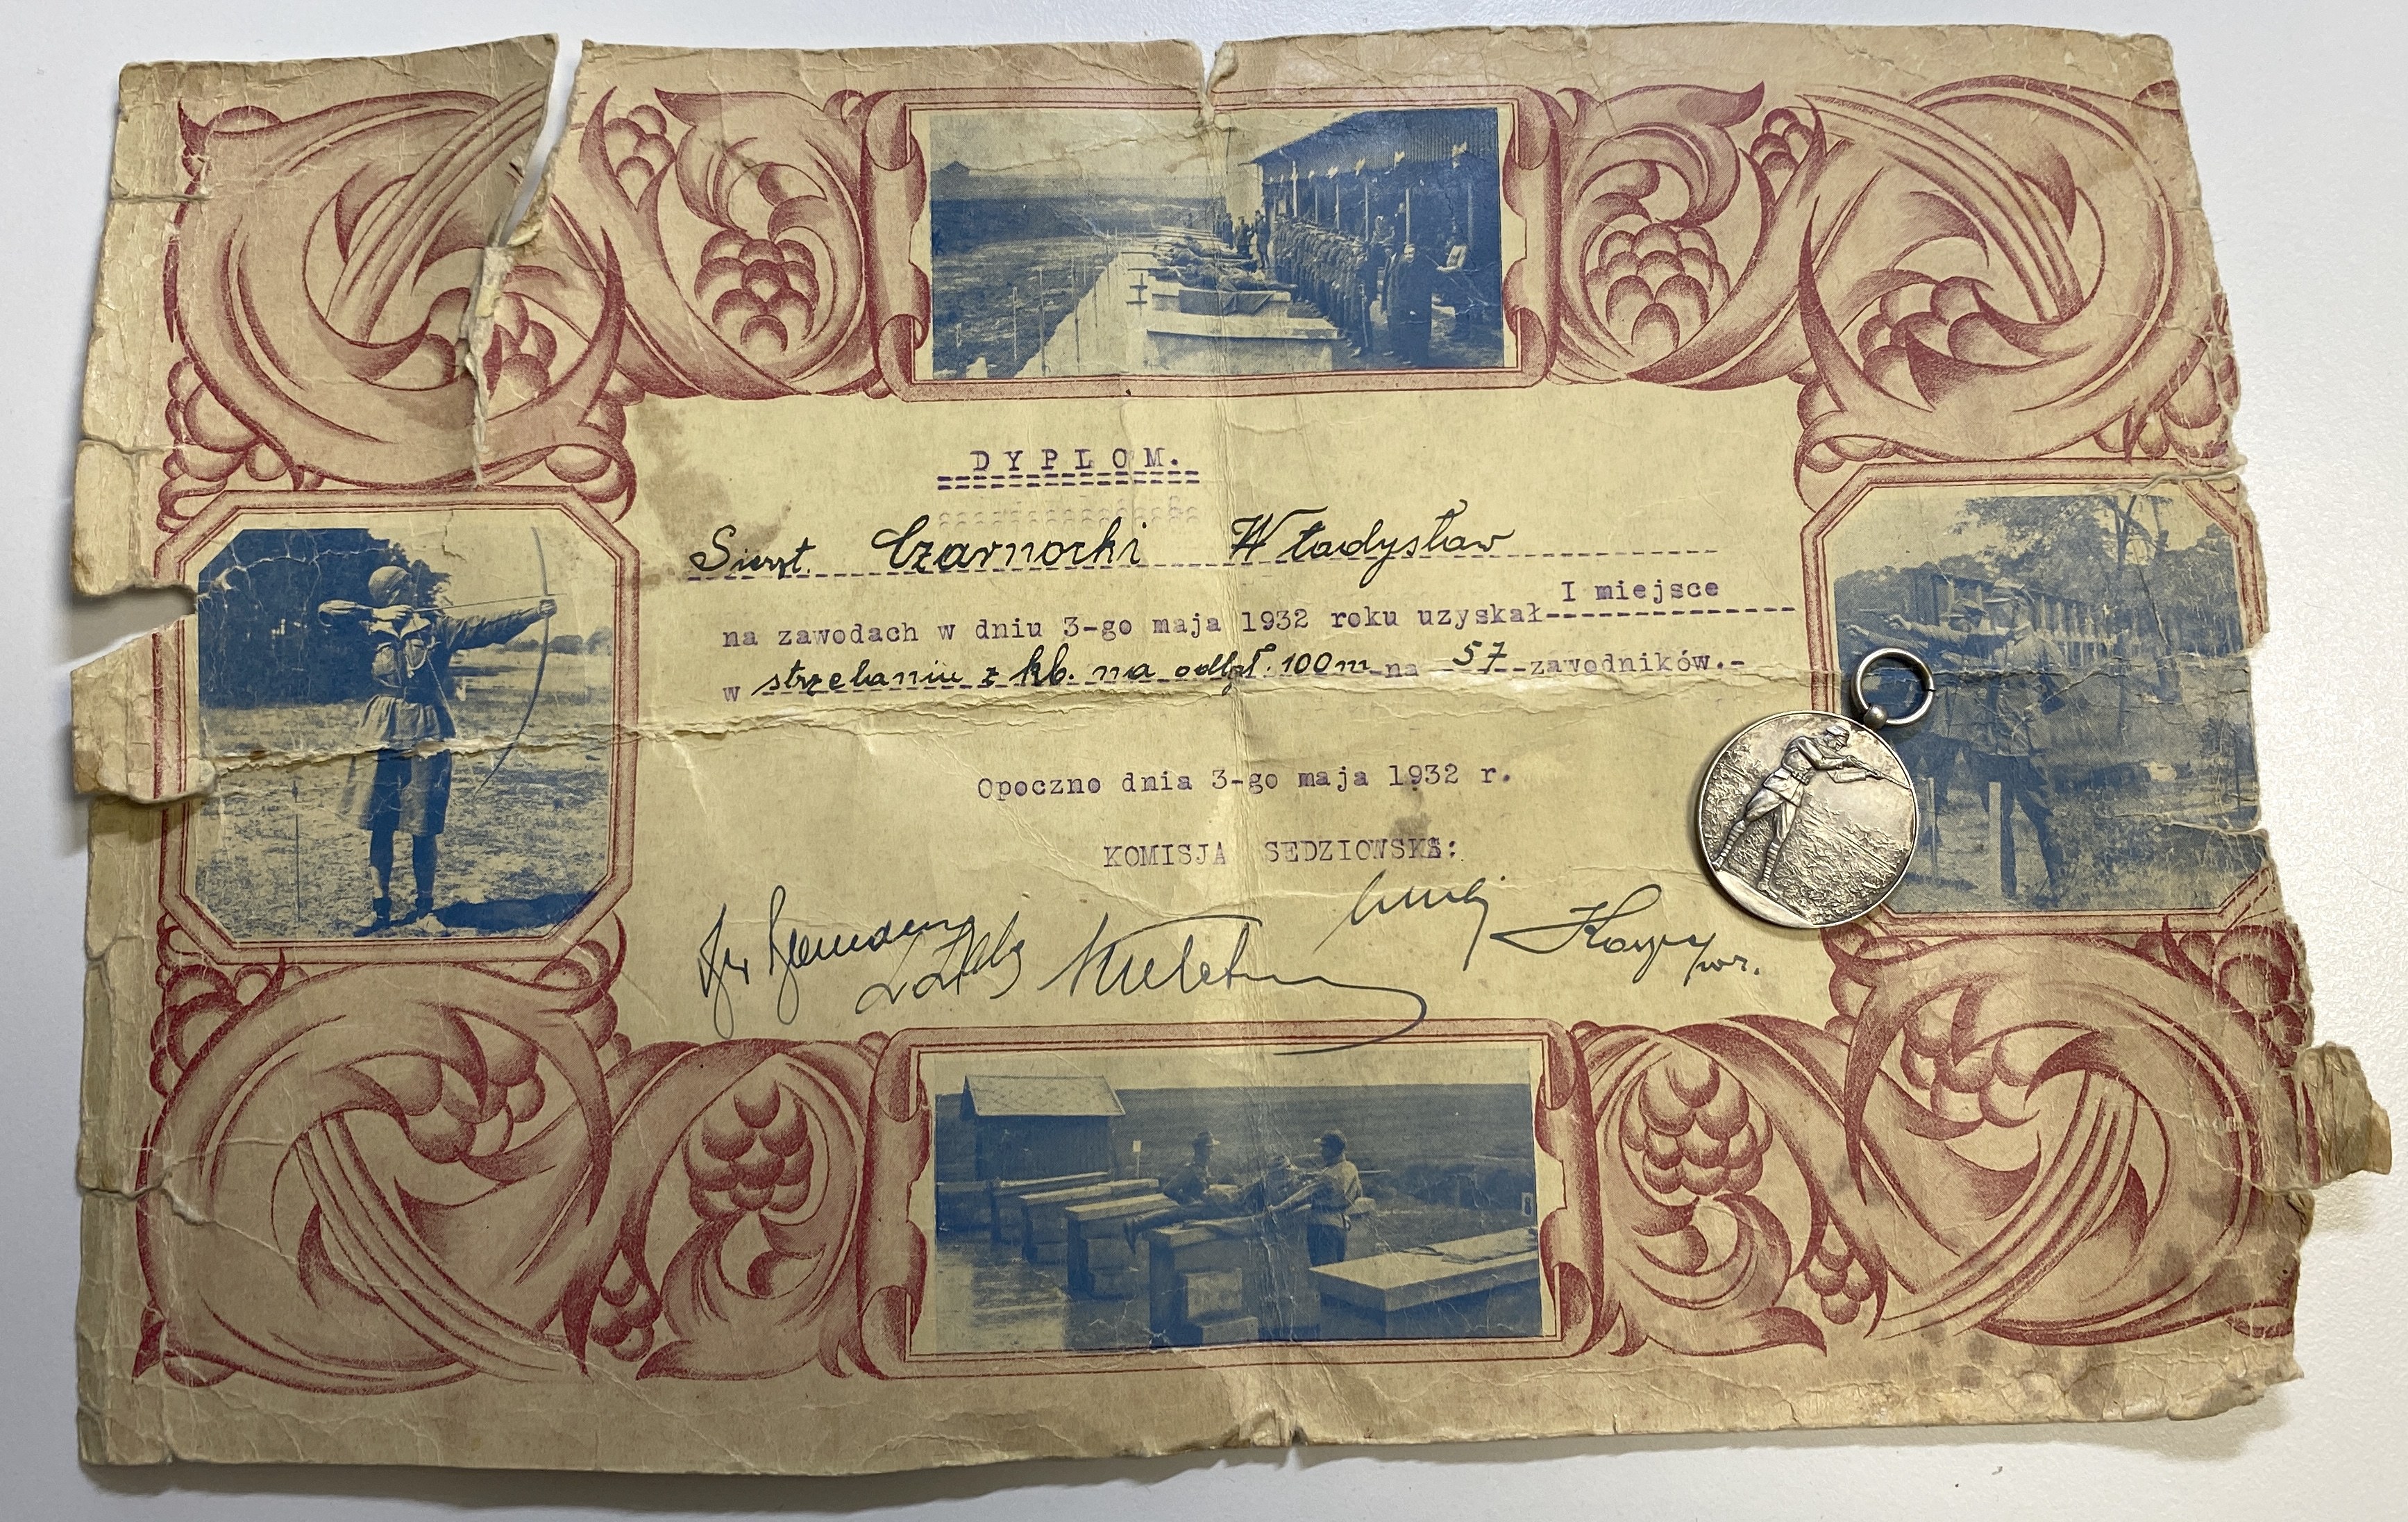 DYPLOM.
Sierżt. Czarnocki Władysław
I miejsce
na zawodach w dniu 3-go maja 1932 roku uzyskał
w strzelaniu z kb. na odległ. 100m na 57 zawodników.-
Opoczno dnia 3-go maja 1932 r.
KOMISJA SEDZIOWSKA: